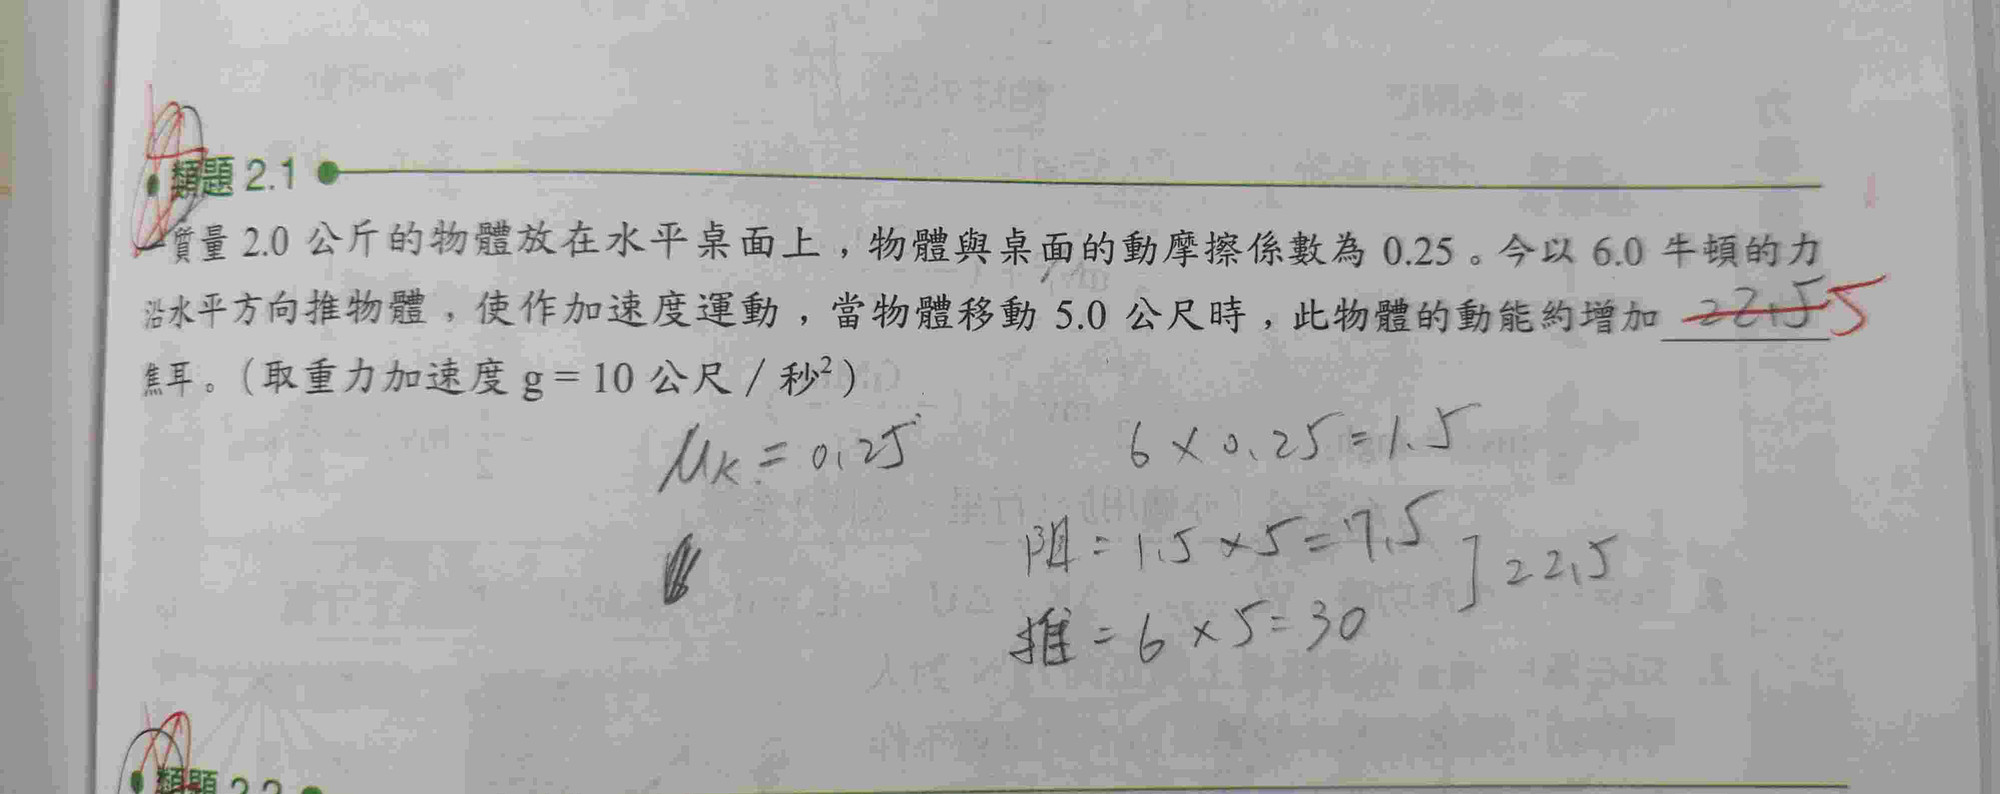 類題 2.1
一質量 2.0 公斤的物體放在水平桌面上，物體與桌面的動摩擦係數為 0.25。今以 6.0 牛頓的力
沿水平方向推物體，使作加速度運動，當物體移動 5.0 公尺時，此物體的動能約增加 22.5 5
焦耳。（取重力加速度 g = 10 公尺／秒²）
μk = 0.25 6 × 0.25 = 1.5
阻 = 1.5 × 5 = 7.5 ] 22.5
推 = 6 × 5 = 30
類題 2.2